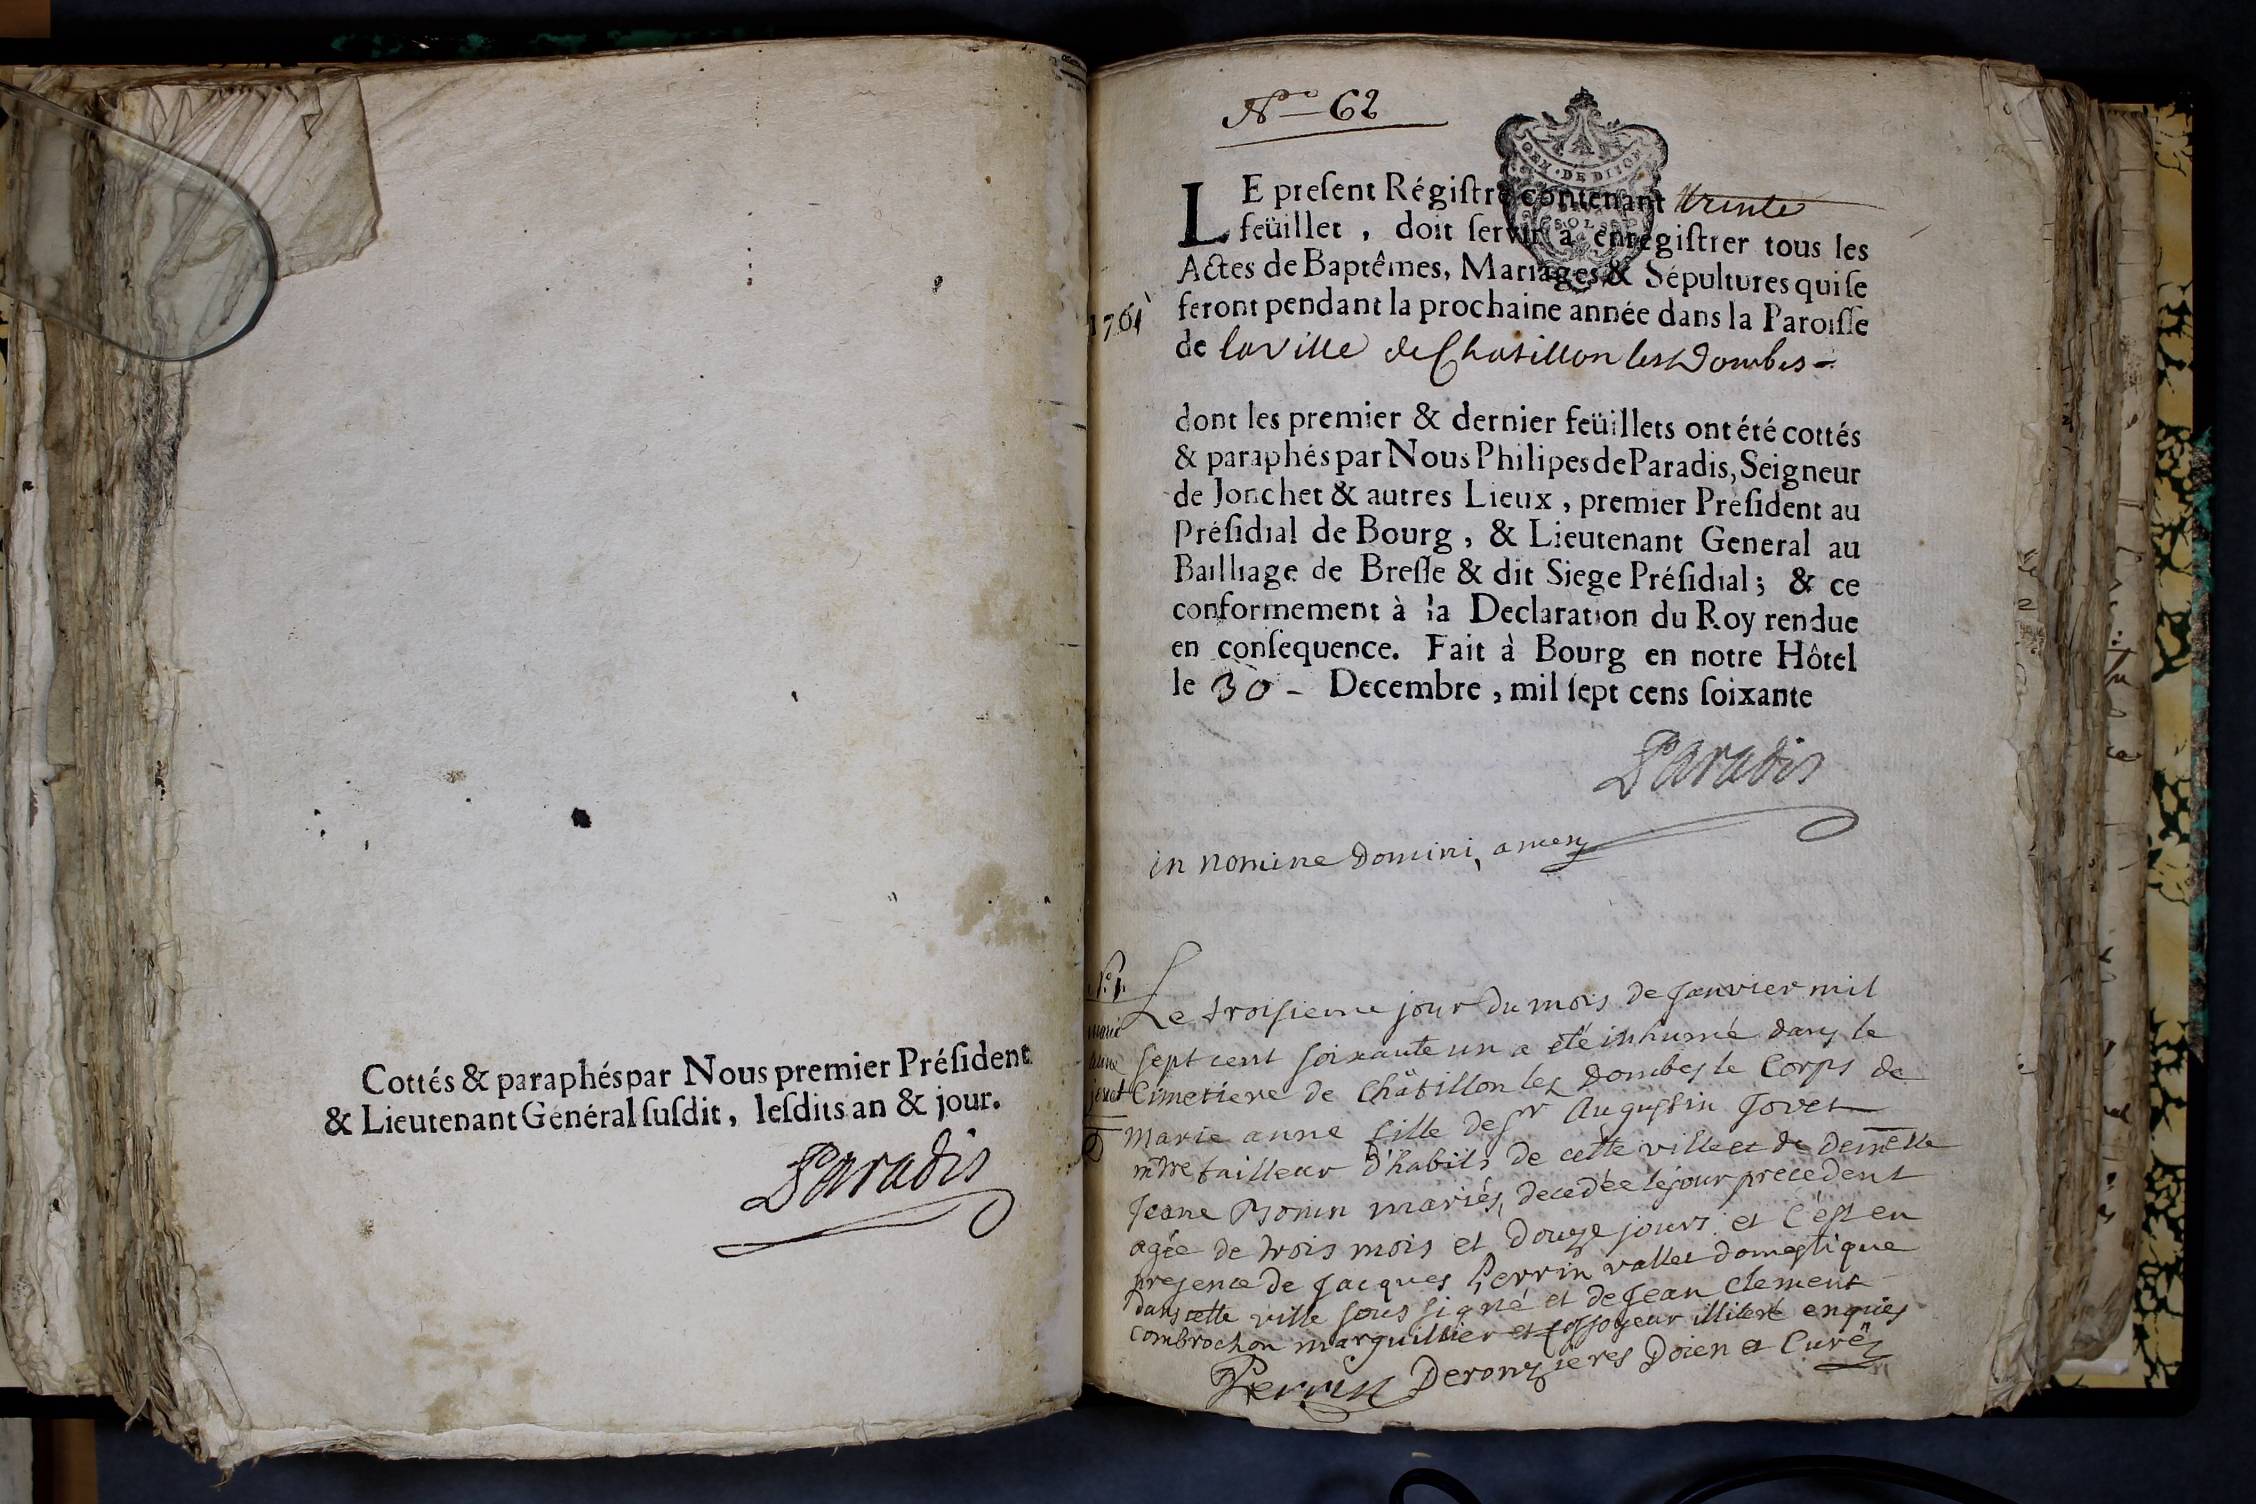 Cottés & paraphés par Nous premier Préſident
& Lieutenant Général ſuſdit, leſdits an & jour.
Paradis
No 62
GEN. DE DIJON
LE preſent Régiſtre contenant trente
feüillet , doit ſervir à enregiſtrer tous les
Actes de Baptêmes, Mariages & Sépultures qui ſe
1761
feront pendant la prochaine année dans la Paroiſſe
de la ville de Chatillon les Dombes -
dont les premier & dernier feüillets ont été cottés
& paraphés par Nous Philipes de Paradis, Seigneur
de Jonchet & autres Lieux , premier Preſident au
Préſidial de Bourg , & Lieutenant General au
Bailliage de Breſſe & dit Siege Préſidial ; & ce
conformement à la Declaration du Roy rendue
en conſequence. Fait à Bourg en notre Hôtel
le 30 - Decembre , mil ſept cens ſoixante
Paradis
in nomine Domini, amen
No 1.
marie
anne
jovet
Le troisieme jour du mois de janvier mil
sept cent soixante un a eté inhumé dans le
Cimetiere de Châtillon les Dombes le Corps de
Marie anne fille de Sr Augustin Jovet
mtre tailleur d'habits de cette ville et de demelle
Jeane Bonin mariés, decedée le jour precedent
agée de trois mois et douze jours et c'est en
presence de Jacques Perrin vallet domestique
dans cette ville sous signé et de Jean Clement
Combrochon marguillier et fossoyeur illiteré enquis
Perrin Deronzieres Doien et Curé